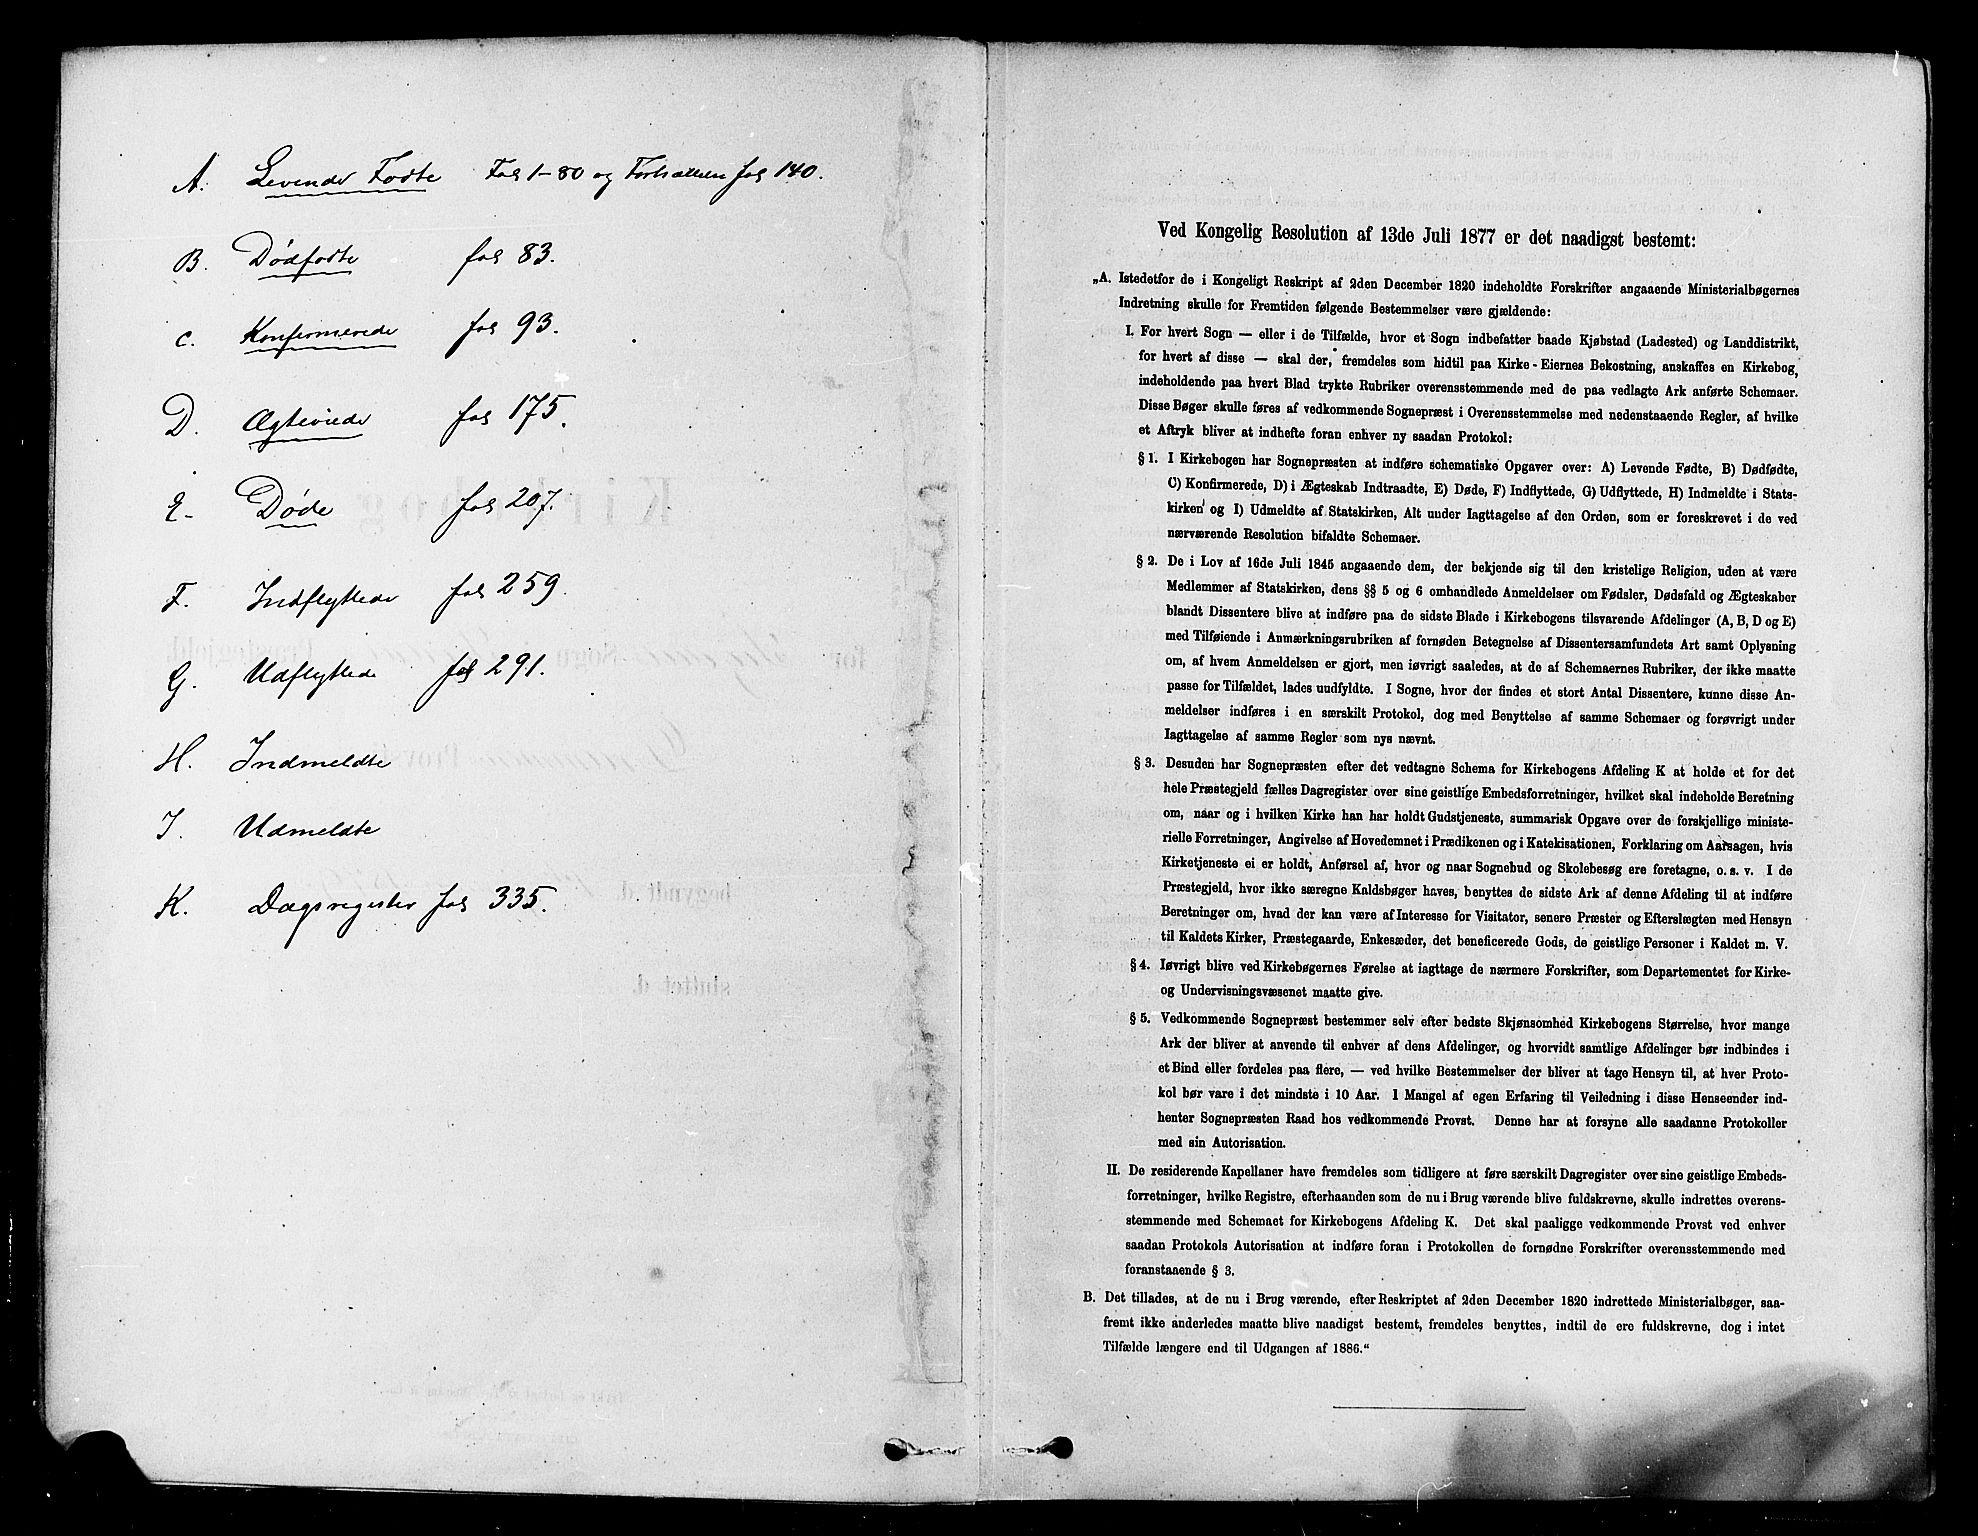 A. Levende Fødte Fol 1-80 og Fortsættelse fol 140.
B. Dødfødte fol 83.
C. Konfirmerede fol 93.
D. Ægteviede fol 175.
E. Døde fol 207.
F. Indflyttede fol 259.
G. Udflyttede fol 291.
H. Indmeldte
I. Udmeldte
K. Dagsregister fol 335.
Ved Kongelig Resolution af 13de Juli 1877 er det naadigst bestemt:
„A. Istedetfor de i Kongeligt Reskript af 2den December 1820 indeholdte Forskrifter angaaende Ministerialbøgernes
Indretning skulle for Fremtiden følgende Bestemmelser være gjældende:
I. For hvert Sogn — eller i de Tilfælde, hvor et Sogn indbefatter baade Kjøbstad (Ladested) og Landdistrikt,
for hvert af disse — skal der, fremdeles som hidtil paa Kirke-Eiernes Bekostning, anskaffes en Kirkebog,
indeholdende paa hvert Blad trykte Rubriker overensstemmende med de paa vedlagte Ark anførte Schemaer.
Disse Bøger skulle føres af vedkommende Sognepræst i Overensstemmelse med nedenstaaende Regler, af hvilke
et Aftryk bliver at indhefte foran enhver ny saadan Protokol:
§ 1. I Kirkebogen har Sognepræsten at indføre schematiske Opgaver over: A) Levende Fødte, B) Dødfødte,
C) Konfirmerede, D) i Ægteskab Indtraadte, E) Døde, F) Indflyttede, G) Udflyttede, H) Indmeldte i Stats-
kirken og I) Udmeldte af Statskirken, Alt under Iagttagelse af den Orden, som er foreskrevet i de ved
nærværende Resolution bifaldte Schemaer.
§ 2. De i Lov af 16de Juli 1845 angaaende dem, der bekjende sig til den kristelige Religion, uden at være
Medlemmer af Statskirken, dens §§ 5 og 6 omhandlede Anmeldelser om Fødsler, Dødsfald og Ægteskaber
blandt Dissentere blive at indføre paa de sidste Blade i Kirkebogens tilsvarende Afdelinger (A, B, D og E)
med Tilføiende i Anmærkningsrubriken af fornøden Betegnelse af Dissentersamfundets Art samt Oplysning
om, af hvem Anmeldelsen er gjort, men iøvrigt saaledes, at de af Schemaernes Rubriker, der ikke maatte
passe for Tilfældet, lades uudfyldte. I Sogne, hvor der findes et stort Antal Dissentere, kunne disse An-
meldelser indføres i en særskilt Protokol, dog med Benyttelse af samme Schemaer og forøvrigt under
Iagttagelse af samme Regler som nys nævnt.
§ 3. Desuden har Sognepræsten efter det vedtagne Schema for Kirkebogens Afdeling K at holde et for det
hele Præstegjeld fælles Dagregister over sine geistlige Embedsforretninger, hvilket skal indeholde Beretning
om, naar og i hvilken Kirke han har holdt Gudstjeneste, summarisk Opgave over de forskjellige ministe-
rielle Forretninger, Angivelse af Hovedemnet i Prædikenen og i Katekisationen, Forklaring om Aarsagen, hvis
Kirketjeneste ei er holdt, Anførsel af, hvor og naar Sognebud og Skolebesøg ere foretagne, o. s. v. I de
Præstegjeld, hvor ikke særegne Kaldsbøger haves, benyttes de sidste Ark af denne Afdeling til at indføre
Beretninger om, hvad der kan være af Interesse for Visitator, senere Præster og Efterslægten med Hensyn
til Kaldets Kirker, Præstegaarde, Enkesæder, det beneficerede Gods, de geistlige Personer i Kaldet m. V.
§ 4. Iøvrigt blive ved Kirkebøgernes Førelse at iagttage de nærmere Forskrifter, som Departementet for Kirke-
og Undervisningsvæsenet maatte give.
§ 5. Vedkommende Sognepræst bestemmer selv efter bedste Skjønsomhed Kirkebogens Størrelse, hvor mange
Ark der bliver at anvende til enhver af dens Afdelinger, og hvorvidt samtlige Afdelinger bør indbindes i
et Bind eller fordeles paa flere, — ved hvilke Bestemmelser der bliver at tage Hensyn til, at hver Proto-
kol bør vare i det mindste i 10 Aar. I Mangel af egen Erfaring til Veiledning i disse Henseender ind-
henter Sognepræsten Raad hos vedkommende Provst. Denne har at forsyne alle saadanne Protokoller
med sin Autorisation.
II. De residerende Kapellaner have fremdeles som tidligere at føre særskilt Dagregister over sine geistlige Embeds-
forretninger, hvilke Registre, efterhaanden som de nu i Brug værende blive fuldskrevne, skulle indrettes overens-
stemmende med Schemaet for Kirkebogens Afdeling K. Det skal paaligge vedkommende Provst ved enhver
saadan Protokols Autorisation at indføre foran i Protokollen de fornødne Forskrifter overensstemmende med
foranstaaende § 3.
B. Det tillades, at de nu i Brug værende, efter Reskriptet af 2den December 1820 indrettede Ministerialbøger, saa-
fremt ikke anderledes maatte blive naadigst bestemt, fremdeles benyttes, indtil de ere fuldskrevne, dog i intet
Tilfælde længere end til Udgangen af 1886.“